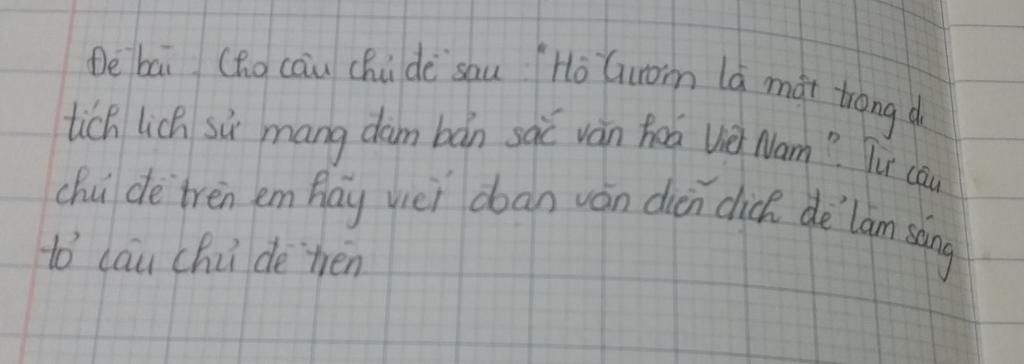 Đề bài. Cho câu chủ đề sau "Hồ Gươm là một trong di
tích lịch sử mang đậm bản sắc văn hoá Việt Nam". Từ câu
chủ đề trên em hãy viết đoạn văn diễn dịch để làm sáng
tỏ câu chủ đề trên